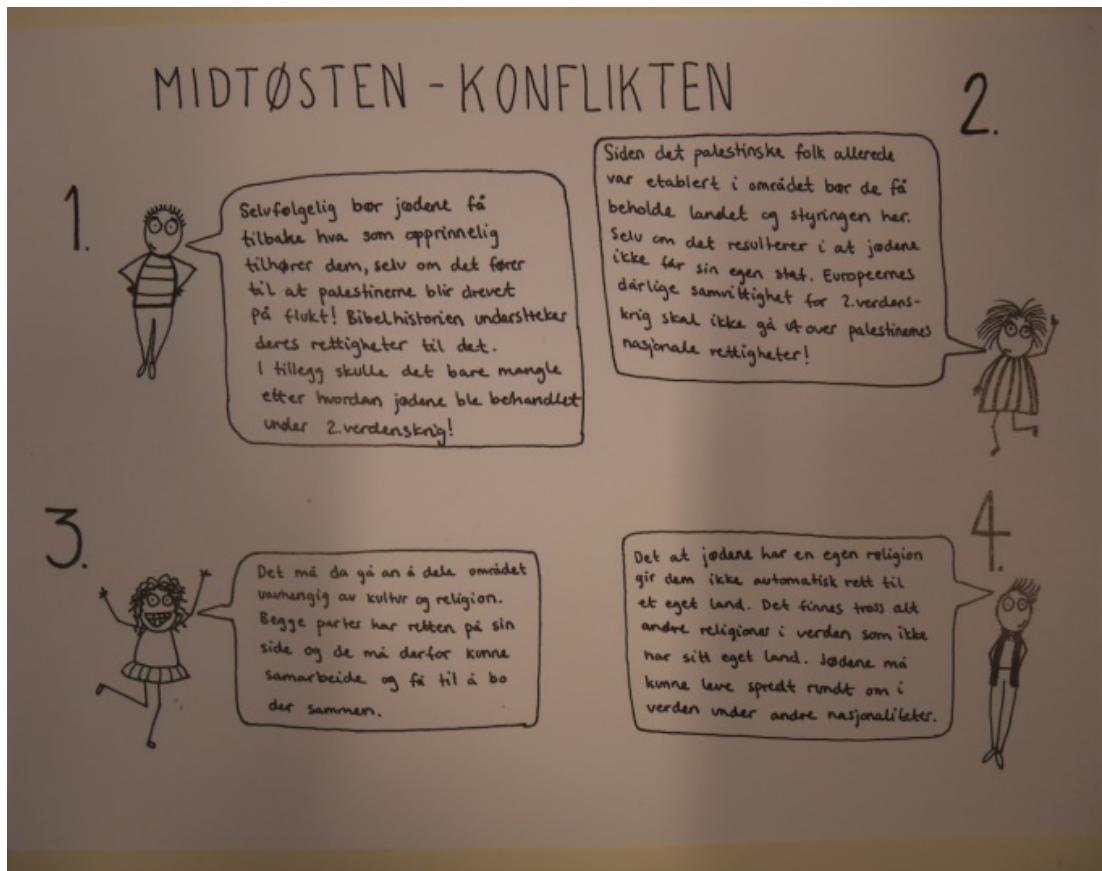 MIDTØSTEN - KONFLIKTEN
1.
Selvfølgelig bør jødene få
tilbake hva som opprinnelig
tilhører dem, selv om det fører
til at palestinerne blir drevet
på flukt! Bibelhistorien understreker
deres rettigheter til det.
I tillegg skulle det bare mangle
etter hvordan jødene ble behandlet
under 2.verdenskrig!
2.
Siden det palestinske folk allerede
var etablert i området bør de få
beholde landet og styringen her.
Selv om det resulterer i at jødene
ikke får sin egen stat. Europeernes
dårlige samvittighet for 2.verdens-
krig skal ikke gå ut over palestinernes
nasjonale rettigheter!
3.
Det må da gå an å dele området
uavhengig av kultur og religion.
Begge parter har retten på sin
side og de må derfor kunne
samarbeide og få til å bo
der sammen.
4.
Det at jødene har en egen religion
gir dem ikke automatisk rett til
et eget land. Det finnes tross alt
andre religioner i verden som ikke
har sitt eget land. Jødene må
kunne leve spredt rundt om i
verden under andre nasjonaliteter.